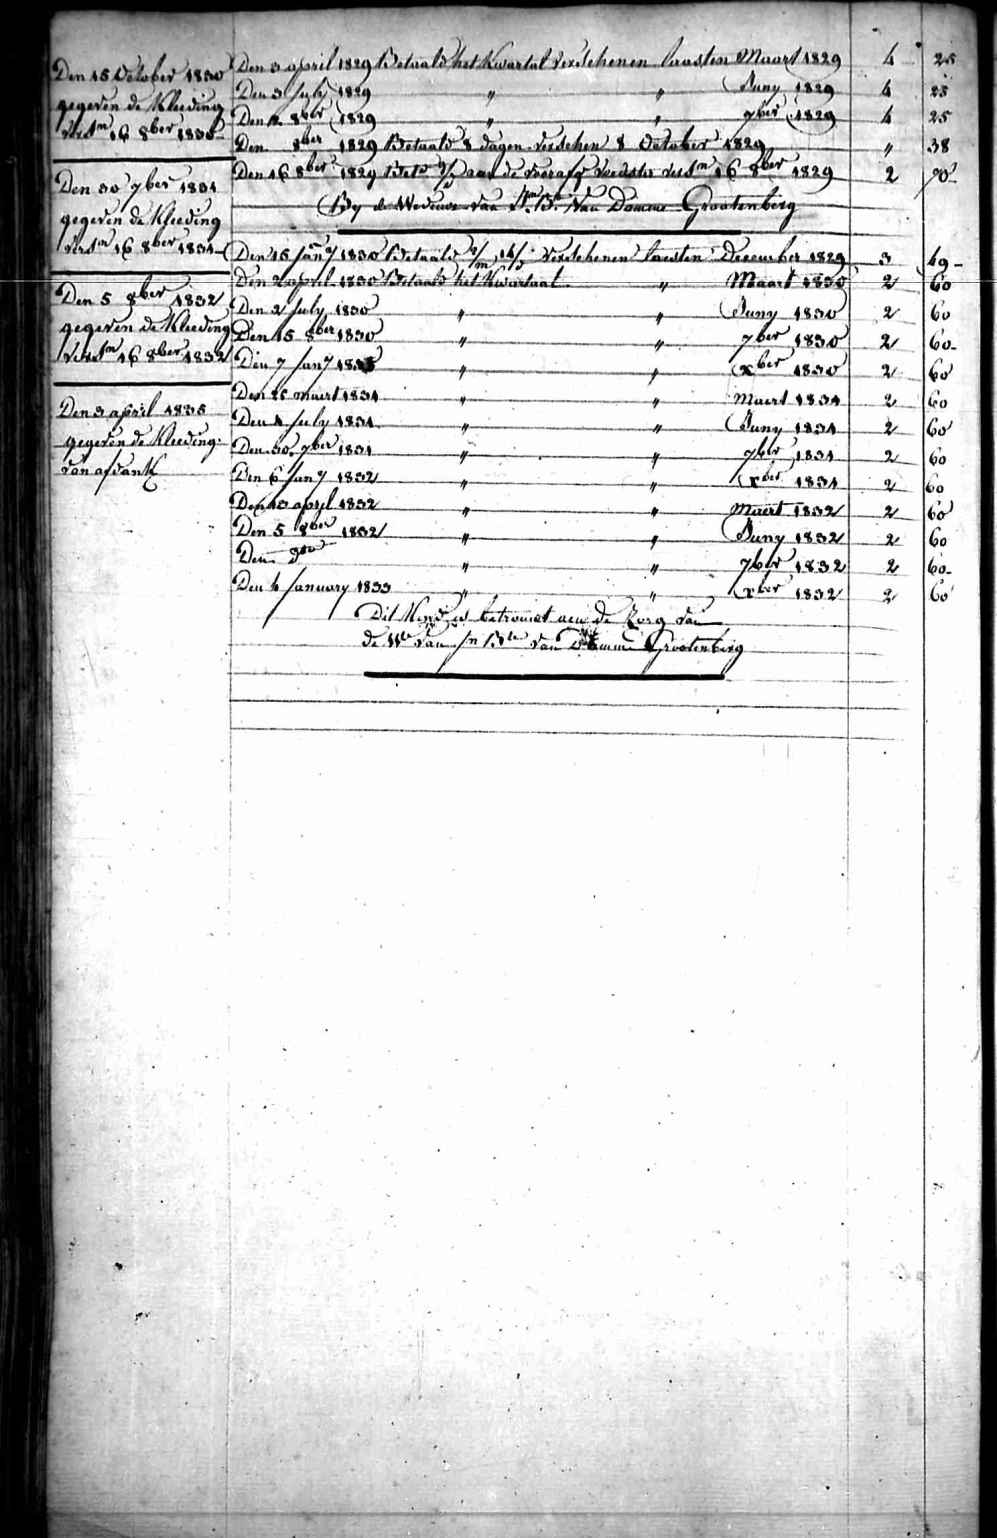 Den 15 October 1830
gegeven de Kleeding
versn 16 8ber 1830
Den 30 7ber 1831
gegeven de Kleeding
versn 16 8ber 1831
Den 5 8ber 1832
gegeven de Kleeding
versn 16 8ber 1832
Den 3 april 1835
gegeven de Kleeding
van afdank
Den 3 april 1829 Betaald het Kwartal verschenen laasten Maart 1829 4 25
Den 3 July 1829 " " Juny 1829 4 25
Den 2 8ber 1829 " " 7ber 1829 4 25
Den 8ber 1829 Betaald 8 dagen verschen 8 October 1829 " 38
Den 16 8ber 1829 aan de voedster versn 16 8ber 1829 2 70
By de Weduwe van Jn Bte Van Damme Grootenberg
Den 15 Jany 1830 Betaald 2/m 14/d verschenen laesten December 1829 3 49
Den 2 april 1830 Betaald het Kwartaal " Maart 1830 2 60
Den 2 July 1830 " " Juny 1830 2 60
Den 15 8ber 1830 " " 7ber 1830 2 60
Den 7 Jany 1831 " " xber 1830 2 60
Den 25 maert 1831 " " Maert 1831 2 60
Den 4 July 1831 " " Juny 1831 2 60
Den 30 7ber 1831 " " 7ber 1831 2 60
Den 6 Jany 1832 " " xber 1831 2 60
Den 13 april 1832 " " Maert 1832 2 60
Den 5 8ber 1832 " " Juny 1832 2 60
Den do " " 7ber 1832 2 60
Den 4 January 1833 " " xber 1832 2 60
Dit Kind is betrouwt aen de Zorg van
de We van Jn Bte van Damme Grootenberg